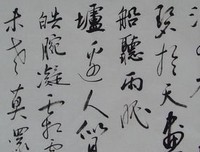 碧於天畫
船聽雨眠
壚邊人似
皓腕凝霜
未老莫還